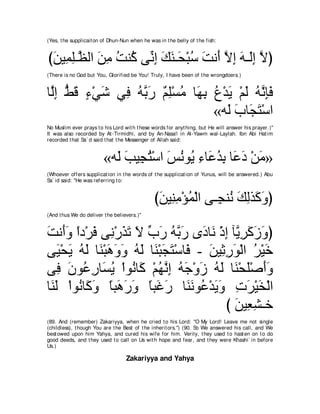 (Yes, the supplicaiton of Dhun-Nun when he was in the belly of the fish:
(لاَّ إِلَـهَ إِلاَّ أَنتَ سُبْحَـنَكَ إِنِّى كُنتُ مِنَ الظَّـلِمِينَ)
(There is no God but You, Glorified be You! Truly, I have been of the wrongdoers.)
فَإِنَّهُ لَمْ يَدْعُ بِهَا مُسْلِمٌ رَبَّهُ فِي شَيْءٍ قَطُّ إِلَّا
اسْتَجَابَ لَه»
No Muslim ever prays to his Lord with these words for anything, but He will answer his prayer.)"
It was also recorded by At-Tirmidhi, and by An-Nasa'i in Al-Yawm wal-Laylah. Ibn Abi Hatim
recorded that Sa`d said that the Messenger of Allah said:
«مَنْ دَعَا بِدُعَاءِ يُونُسَ اسْتُجِيبَ لَه»
(Whoever offers supplication in the words of the supplication of Yunus, will be answered.) Abu
Sa`id said: "He was referring to:
(وَكَذلِكَ نُنجِـى الْمُؤْمِنِينَ)
(And thus We do deliver the believers.)"
(وَزَكَرِيَّآ إِذْ نَادَى رَبَّهُ رَبِّ لاَ تَذَرْنِى فَرْداً وَأَنتَ
خَيْرُ الْوَرِثِينَ - فَاسْتَجَبْنَا لَهُ وَوَهَبْنَا لَهُ يَحْيَى
وَأَصْلَحْنَا لَهُ زَوْجَهُ إِنَّهُمْ كَانُواْ يُسَارِعُونَ فِى
الْخَيْرَتِ وَيَدْعُونَنَا رَغَباً وَرَهَباً وَكَانُواْ لَنَا
خـشِعِينَ )
(89. And (remember) Zakariyya, when he cried to his Lord: "O My Lord! Leave me not single
(childless), though You are the Best of the inheritors.") (90. So We answered his call, and We
bestowed upon him Yahya, and cured his wife for him. Verily, they used to hasten on to do
good deeds, and they used to call on Us with hope and fear, and they were Khashi`in before
Us.)
Zakariyya and Yahya